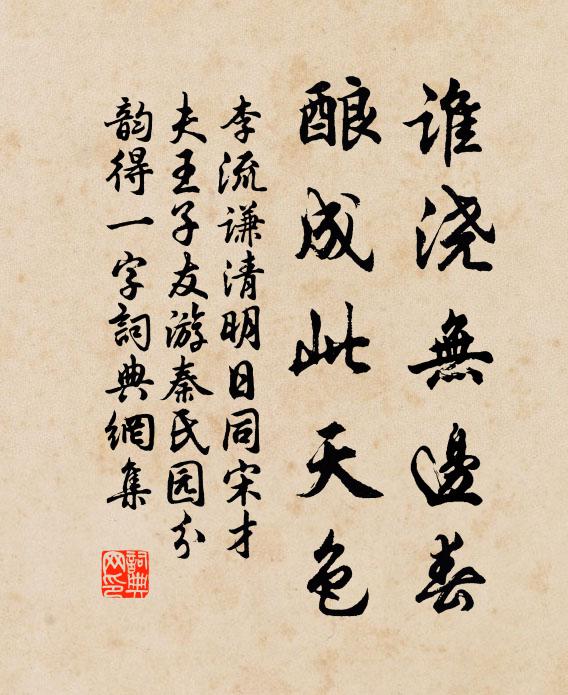 谁浇無邊春
酿成此天色
李流谦清明日同宋才
夫王子友游秦民园分
韵得一字詞典網集
詞典
网印